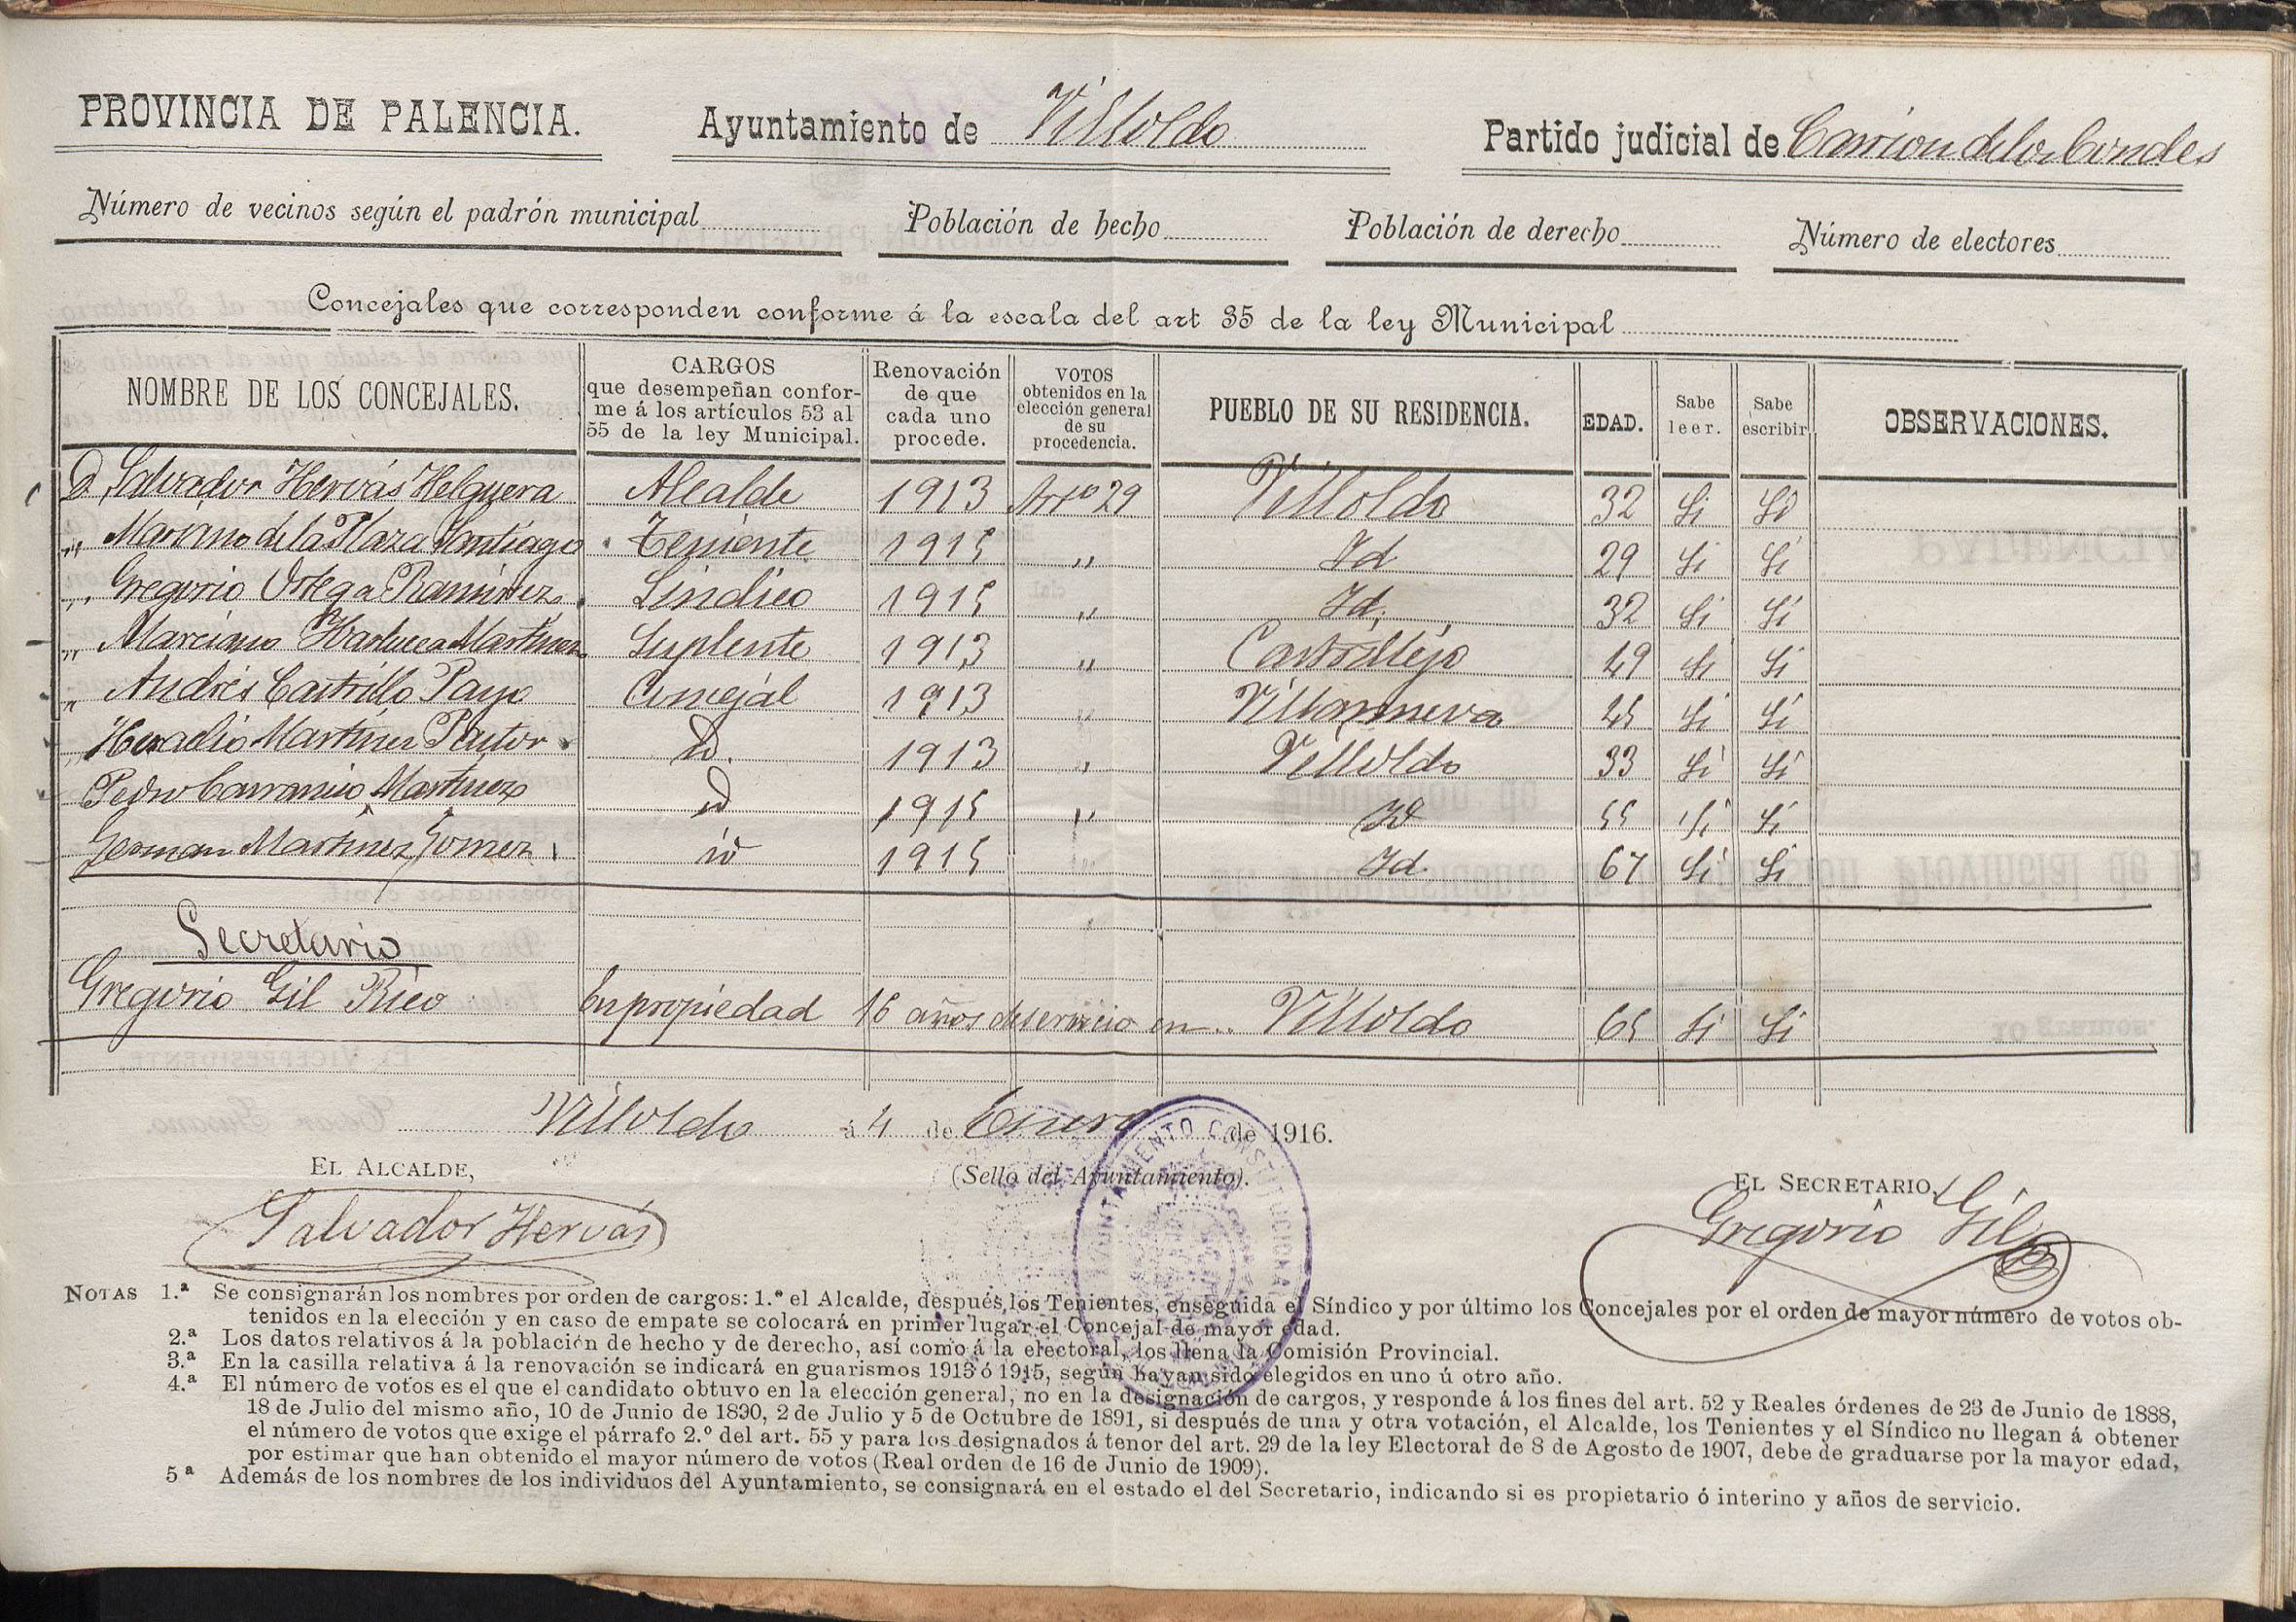 PROVINCIA DE PALENCIA. Ayuntamiento de Villoldo Partido judicial de Carrion de los Condes
Número de vecinos según el padrón municipal Población de hecho Población de derecho Número de electores
Concejales que corresponden conforme á la escala del art 35 de la ley Municipal
NOMBRE DE LOS CONCEJALES. CARGOS que desempeñan conforme á los artículos 53 al 55 de la ley Municipal. Renovación de que cada uno procede. VOTOS obtenidos en la elección general de su procedencia. PUEBLO DE SU RESIDENCIA. EDAD. Sabe leer. Sabe escribir OBSERVACIONES.
D. Salvador Hervás Helguera Alcalde 1913 Artº 29 Villoldo 32 Si Si
" Mariano de la Plaza Santiago Teniente 1915 " Id 29 Si Si
" Gregorio Ortega Ramírez Sindico 1915 " Id. 32 Si Si
" Marciano Martínez Suplente 1913 " Castrillejo 49 Si Si
" Andrés Castrillo Payo Concejal 1913 " Villanueva 45 Si Si
" Heraclio Martínez Pastor Id. 1913 " Villoldo 33 Si Si
Pedro Carrancio Martínez id 1915 " Id 55 Si Si
German Martínez Gomez id 1915 " Id. 67 Si Si
Secretario
Gregorio Gil Rico En propiedad 16 años de servicio en Villoldo 65 Si Si
Villoldo á 4 de Enero de 1916.
EL ALCALDE, (Sello del Ayuntamiento). EL SECRETARIO,
AYUNTAMIENTO CONSTITUCIONAL
Salvador Hervás Gregorio Gil
NOTAS 1.ª Se consignarán los nombres por orden de cargos: 1.º el Alcalde, después los Tenientes, enseguida el Síndico y por último los Concejales por el orden de mayor número de votos ob-
tenidos en la elección y en caso de empate se colocará en primer lugar el Concejal de mayor edad.
2.ª Los datos relativos á la población de hecho y de derecho, así como á la electoral, los llena la Comisión Provincial.
3.ª En la casilla relativa á la renovación se indicará en guarismos 1913 ó 1915, según hayan sido elegidos en uno ú otro año.
4.ª El número de votos es el que el candidato obtuvo en la elección general, no en la designación de cargos, y responde á los fines del art. 52 y Reales órdenes de 23 de Junio de 1888,
18 de Julio del mismo año, 10 de Junio de 1890, 2 de Julio y 5 de Octubre de 1891, si después de una y otra votación, el Alcalde, los Tenientes y el Síndico no llegan á obtener
el número de votos que exige el párrafo 2.º del art. 55 y para los designados á tenor del art. 29 de la ley Electoral de 8 de Agosto de 1907, debe de graduarse por la mayor edad,
por estimar que han obtenido el mayor número de votos (Real orden de 16 de Junio de 1909).
5ª Además de los nombres de los individuos del Ayuntamiento, se consignará en el estado el del Secretario, indicando si es propietario ó interino y años de servicio.